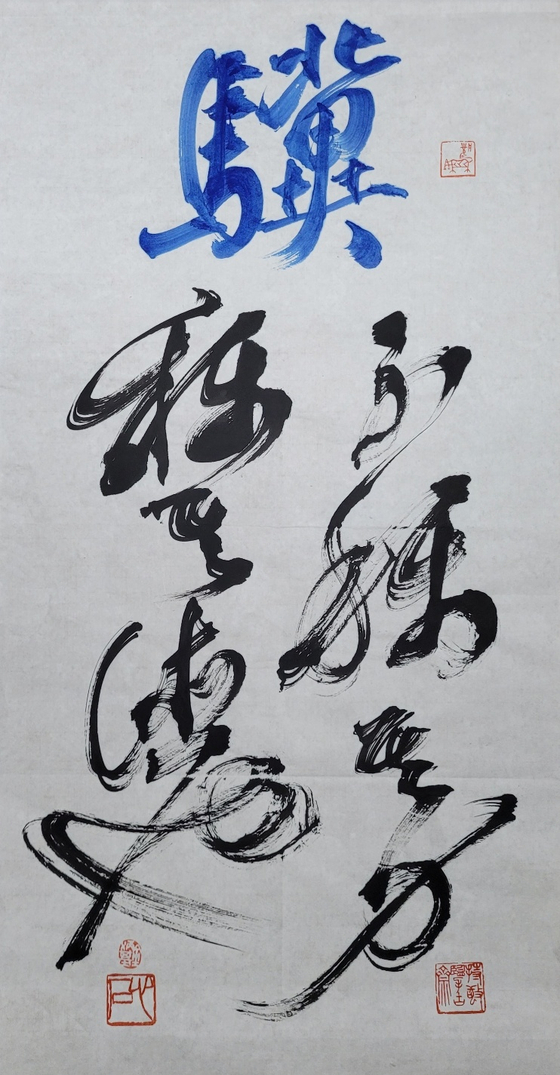 驥
不稱其力
稱其德也